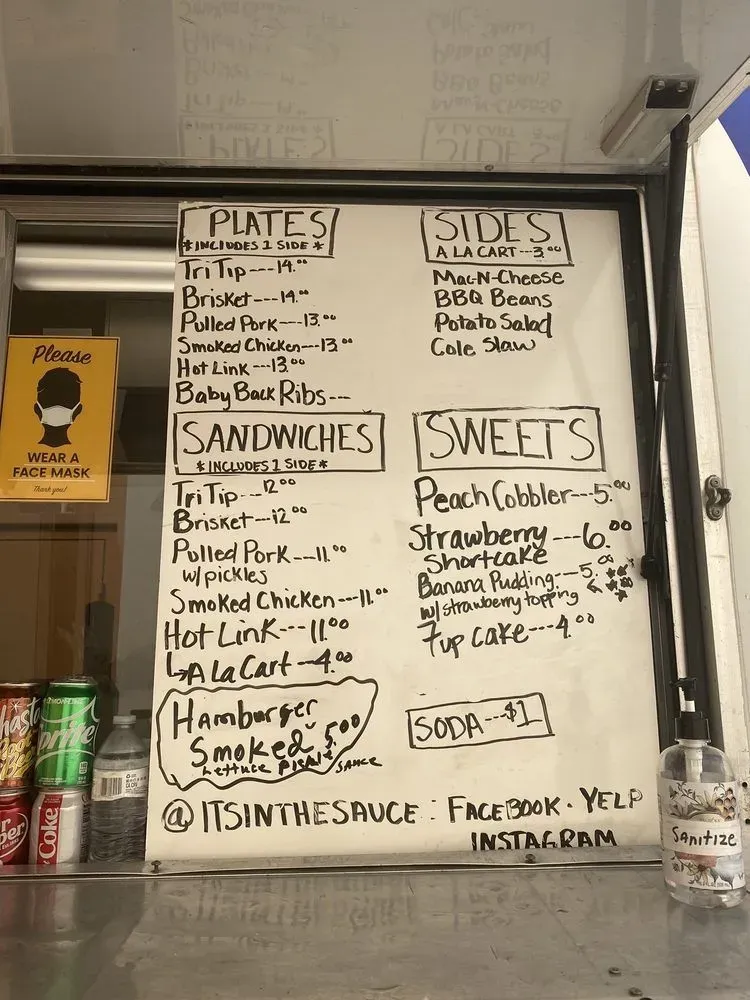 PLATES
*INCLUDES 1 SIDE*
Tri Tip---14.00
Brisket---14.00
Pulled Pork---13.00
Smoked Chicken---13.00
Hot Link---13.00
Baby Back Ribs---
SANDWICHES
*INCLUDES 1 SIDE*
Tri Tip---12.00
Brisket---12.00
Pulled Pork---11.00
w/pickles
Smoked Chicken---11.00
Hot Link---11.00
↳A La Cart---4.00
Hamburger
Smoked 5.00
Lettuce Pickle SAUCE
SIDES
A LA CART---3.00
Mac-N-Cheese
BBQ Beans
Potato Salad
Cole Slaw
SWEETS
Peach Cobbler---5.00
Strawberry---6.00
Shortcake
Banana Pudding---5.00
w/strawberry topping
7up cake---4.00
SODA---$1
@ITSINTHESAUCE: FACEBOOK. YELP
INSTAGRAM
Please
WEAR A
FACE MASK
Thank you!
Sprite
Coke
Sanitize